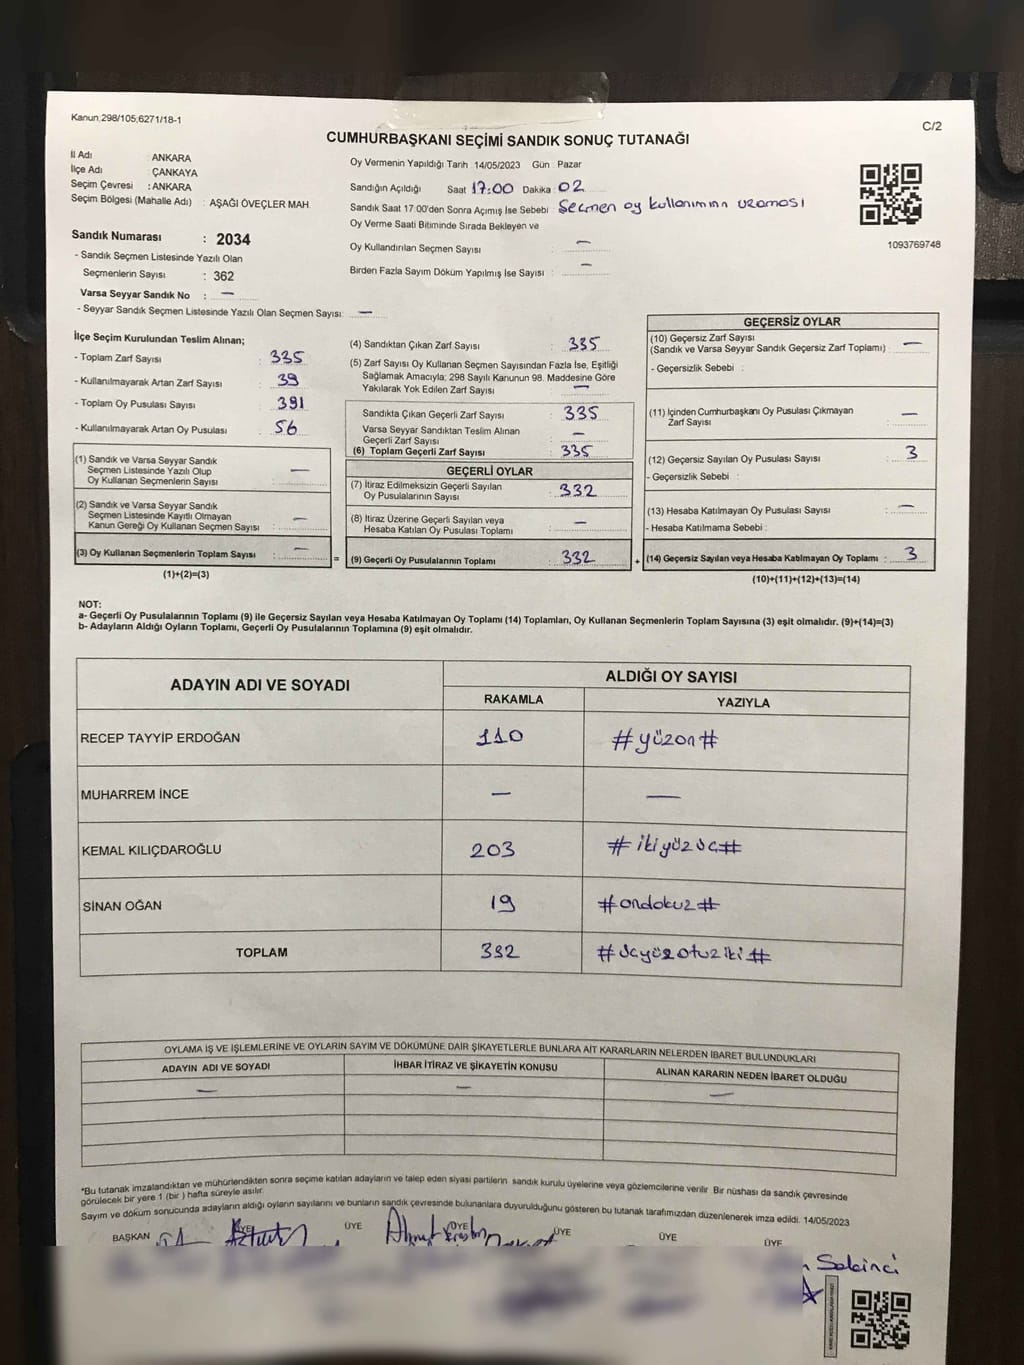 Kanun,298/105;6271/18-1
C/2
CUMHURBAŞKANI SEÇİMİ SANDIK SONUÇ TUTANAĞI
İl Adı : ANKARA
İlçe Adı : ÇANKAYA
Seçim Çevresi : ANKARA
Seçim Bölgesi (Mahalle Adı) : AŞAĞI ÖVEÇLER MAH.
Sandık Numarası : 2034
- Sandık Seçmen Listesinde Yazılı Olan
Seçmenlerin Sayısı : 362
Varsa Seyyar Sandık No : —
- Seyyar Sandık Seçmen Listesinde Yazılı Olan Seçmen Sayısı: —
Oy Vermenin Yapıldığı Tarih : 14/05/2023 Gün : Pazar
Sandığın Açıldığı Saat 17:00 Dakika : 02
Sandık Saat 17:00'den Sonra Açımış İse Sebebi : Seçmen oy kullanımının uzaması
Oy Verme Saati Bitiminde Sırada Bekleyen ve
Oy Kullandırılan Seçmen Sayısı : —
Birden Fazla Sayım Döküm Yapılmış İse Sayısı : —
1093769748
İlçe Seçim Kurulundan Teslim Alınan;
- Toplam Zarf Sayısı : 335
- Kullanılmayarak Artan Zarf Sayısı : 39
- Toplam Oy Pusulası Sayısı : 391
- Kullanılmayarak Artan Oy Pusulası : 56
(1) Sandık ve Varsa Seyyar Sandık
Seçmen Listesinde Yazılı Olup
Oy Kullanan Seçmenlerin Sayısı : —
(2) Sandık ve Varsa Seyyar Sandık
Seçmen Listesinde Kayıtlı Olmayan
Kanun Gereği Oy Kullanan Seçmen Sayısı : —
(3) Oy Kullanan Seçmenlerin Toplam Sayısı : —
(1)+(2)=(3)
=
(4) Sandıktan Çıkan Zarf Sayısı : 335
(5) Zarf Sayısı Oy Kullanan Seçmen Sayısından Fazla İse, Eşitliği
Sağlamak Amacıyla; 298 Sayılı Kanunun 98. Maddesine Göre
Yakılarak Yok Edilen Zarf Sayısı : —
Sandıkta Çıkan Geçerli Zarf Sayısı : 335
Varsa Seyyar Sandıktan Teslim Alınan
Geçerli Zarf Sayısı : —
(6) Toplam Geçerli Zarf Sayısı : 335
GEÇERLİ OYLAR
(7) İtiraz Edilmeksizin Geçerli Sayılan
Oy Pusulalarının Sayısı : 332
(8) İtiraz Üzerine Geçerli Sayılan veya
Hesaba Katılan Oy Pusulaları Toplamı : —
(9) Geçerli Oy Pusulalarının Toplamı : 332
+
GEÇERSİZ OYLAR
(10) Geçersiz Zarf Sayısı
(Sandık ve Varsa Seyyar Sandık Geçersiz Zarf Toplamı) : —
- Geçersizlik Sebebi :
(11) İçinden Cumhurbaşkanı Oy Pusulası Çıkmayan
Zarf Sayısı : —
(12) Geçersiz Sayılan Oy Pusulası Sayısı : 3
- Geçersizlik Sebebi :
(13) Hesaba Katılmayan Oy Pusulası Sayısı : —
- Hesaba Katılmama Sebebi :
(14) Geçersiz Sayılan veya Hesaba Katılmayan Oy Toplamı : 3
(10)+(11)+(12)+(13)=(14)
NOT:
a- Geçerli Oy Pusulalarının Toplamı (9) ile Geçersiz Sayılan veya Hesaba Katılmayan Oy Toplamı (14) Toplamları, Oy Kullanan Seçmenlerin Toplam Sayısına (3) eşit olmalıdır. (9)+(14)=(3)
b- Adayların Aldığı Oyların Toplamı, Geçerli Oy Pusulalarının Toplamına (9) eşit olmalıdır.
ADAYIN ADI VE SOYADI
ALDIĞI OY SAYISI
RAKAMLA YAZIYLA
RECEP TAYYİP ERDOĞAN 110 #yüzon#
MUHARREM İNCE — —
KEMAL KILIÇDAROĞLU 203 #ikiyüzüç#
SİNAN OĞAN 19 #ondokuz#
TOPLAM 332 #üçyüzotuziki#
OYLAMA İŞ VE İŞLEMLERİNE VE OYLARIN SAYIM VE DÖKÜMÜNE DAİR ŞİKAYETLERLE BUNLARA AİT KARARLARIN NELERDEN İBARET BULUNDUKLARI
ADAYIN ADI VE SOYADI İHBAR İTİRAZ VE ŞİKAYETİN KONUSU ALINAN KARARIN NEDEN İBARET OLDUĞU
— — —
*Bu tutanak imzalandıktan ve mühürlendikten sonra seçime katılan adayların ve talep eden siyasi partilerin sandık kurulu üyelerine veya gözlemcilerine verilir. Bir nüshası da sandık çevresinde
görülecek bir yere 1 (bir) hafta süreyle asılır.
Sayım ve döküm sonucunda adayların aldığı oyların sayılarını ve bunların sandık çevresinde bulunanlara duyurulduğunu gösteren bu tutanak tarafımızdan düzenlenerek imza edildi. 14/05/2023
BAŞKAN ÜYE ÜYE ÜYE ÜYE ÜYE ÜYE
Ahmet